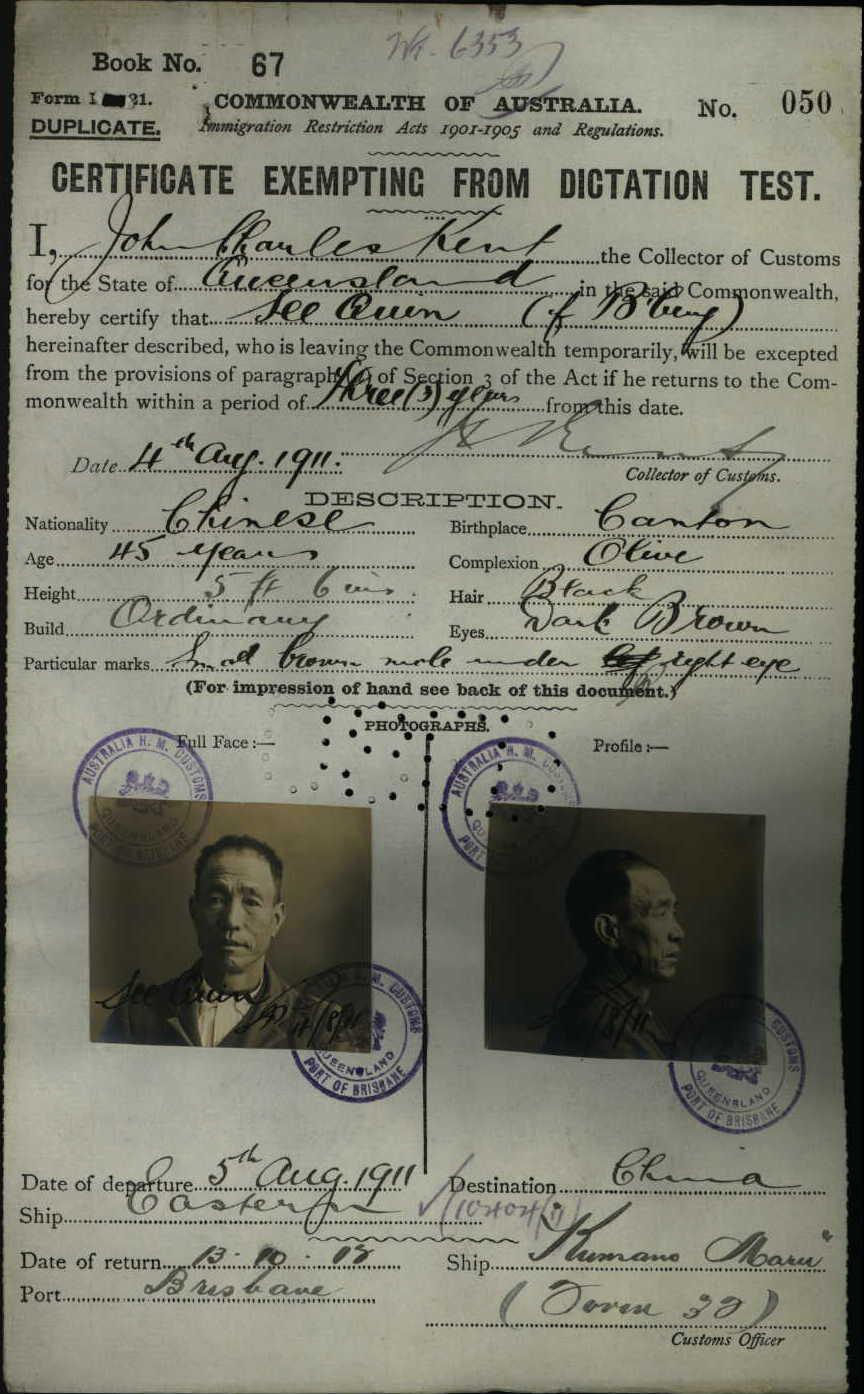 Wt. 6353
Book No. 67
Form 21.
COMMONWEALTH OF AUSTRALIA.
No. 050
DUPLICATE.
Immigration Restriction Acts 1901-1905 and Regulations.
CERTIFICATE EXEMPTING FROM DICTATION TEST.
I, John Charles Kent the Collector of Customs
for the State of Queensland in the said Commonwealth,
hereby certify that See Quin (of B'berg)
hereinafter described, who is leaving the Commonwealth temporarily, will be excepted
from the provisions of paragraph of Section 3 of the Act if he returns to the Com-
monwealth within a period of three (3) years from this date.
Date 4th Aug. 1911.
Collector of Customs.
DESCRIPTION.
Nationality Chinese Birthplace Canton
Age 45 years Complexion Olive
Height 5 ft 6 ins. Hair Black
Build Ordinary Eyes Dark Brown
Particular marks Small brown mole under right eye
(For impression of hand see back of this document.)
PHOTOGRAPHS.
Full Face :— Profile :—
AUSTRALIA H. M. CUSTOMS QUEENSLAND PORT OF BRISBANE
AUSTRALIA H. M. CUSTOMS QUEENSLAND PORT OF
See Quin
H. M. CUSTOMS QUEENSLAND PORT OF BRISBANE
CUSTOMS QUEENSLAND PORT OF BRISBANE
Date of departure 5th Aug. 1911 Destination China
Ship Eastern
Date of return 13. 10. 12 Ship "Kumano Maru"
Port Brisbane
(Form 32)
Customs Officer